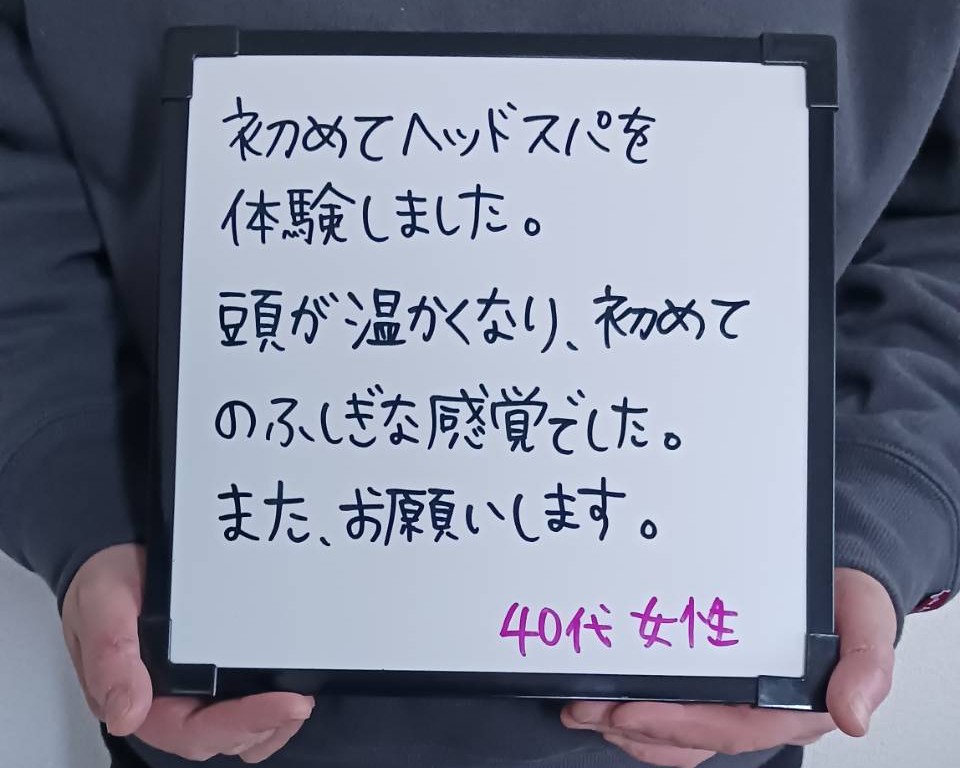 初めてヘッドスパを
体験しました。
頭が温かくなり、初めて
のふしぎな感覚でした。
また、お願いします。
40代 女性